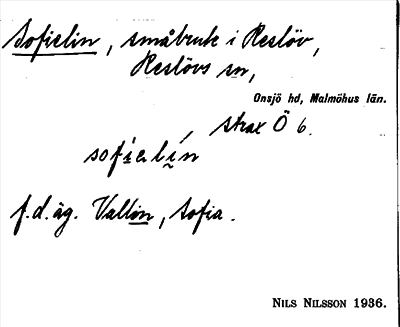 Sofielin, småbruk i Reslöv,
Reslövs sn,
Onsjö hd, Malmöhus län.
, strax Ö 6.
sofielín
f.d. äg. Vallin, Sofia.
NILS NILSSON 1936.